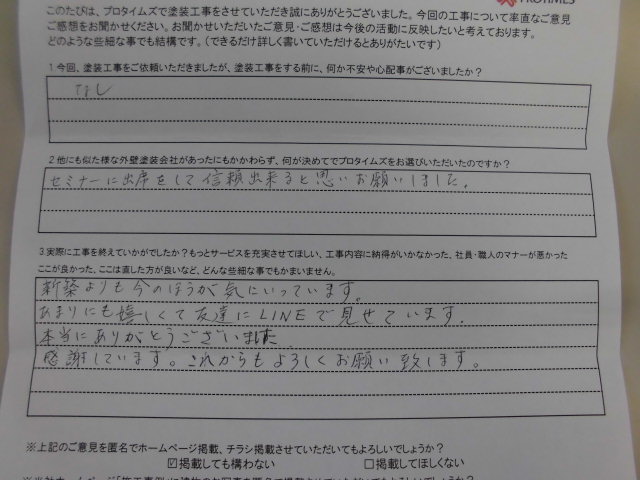 PROTIMES
このたびは、プロタイムズで塗装工事をさせていただき誠にありがとうございました。今回の工事について率直なご意見
ご感想をお聞かせください。お聞かせいただいたご意見・ご感想は今後の活動に反映したいと考えております。
どのような些細な事でも結構です。(できるだけ詳しく書いていただけるとありがたいです)
1.今回、塗装工事をご依頼いただきましたが、塗装工事をする前に、何か不安や心配事がございましたか?
なし
2.他にも似た様な外壁塗装会社があったにもかかわらず、何が決めてでプロタイムズをお選びいただいたのですか?
セミナーに出席をして信頼出来ると思いお願いしました。
3.実際に工事を終えていかがでしたか?もっとサービスを充実させてほしい、工事内容に納得がいかなかった、社員・職人のマナーが悪かった
ここが良かった、ここは直した方が良いなど、どんな些細な事でもかまいません。
新築よりも今のほうが気にいっています。
あまりにも嬉しくて友達にLINEで見せています.
本当にありがとうございました.
感謝しています。これからもよろしくお願い致します。
※上記のご意見を匿名でホームページ掲載、チラシ掲載させていただいてもよろしいでしょうか?
☑掲載しても構わない □掲載してほしくない